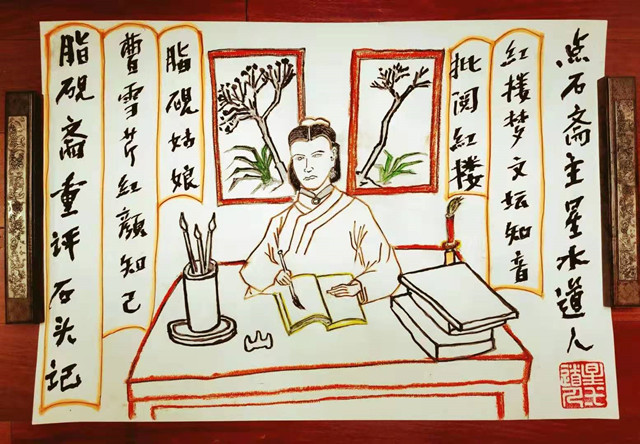 脂硯斋重评石头记
曹雪芹红颜知己
脂硯姑娘
批阅红楼
红楼梦文坛知音
点石斋主星水道人